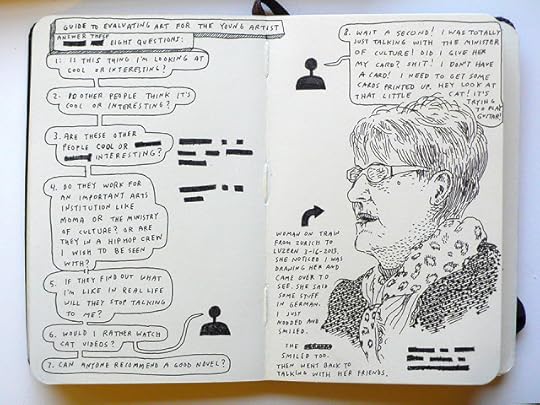 GUIDE TO EVALUATING ART FOR THE YOUNG ARTIST
ANSWER THESE
EIGHT QUESTIONS:
1: IS THIS THING I'M LOOKING AT
COOL OR INTERESTING?
2. DO OTHER PEOPLE THINK IT'S
COOL OR INTERESTING?
3. ARE THESE OTHER
PEOPLE COOL OR
INTERESTING?
4. DO THEY WORK FOR
AN IMPORTANT ARTS
INSTITUTION LIKE
MOMA OR THE MINISTRY
OF CULTURE? OR ARE
THEY IN A HIPHOP CREW
I WISH TO BE SEEN
WITH?
5. IF THEY FIND OUT WHAT
I'M LIKE IN REAL LIFE
WILL THEY STOP TALKING
TO ME?
6. WOULD I RATHER WATCH
CAT VIDEOS?
7. CAN ANYONE RECOMMEND A GOOD NOVEL?
8. WAIT A SECOND! I WAS TOTALLY
JUST TALKING WITH THE MINISTER
OF CULTURE! DID I GIVE HER
MY CARD? SHIT! I DON'T HAVE
A CARD! I NEED TO GET SOME
CARDS PRINTED UP. HEY LOOK AT
THAT LITTLE CAT! IT'S
TRYING
TO PLAY
GUITAR!
WOMAN ON TRAIN
FROM ZURICH TO
LUZERN 3-16-2013.
SHE NOTICED I WAS
DRAWING HER AND
CAME OVER TO
SEE. SHE SAID
SOME STUFF
IN GERMAN.
I JUST
NODDED AND
SMILED.
THE
SMILED TOO.
THEN WENT BACK TO
TALKING WITH HER FRIENDS.